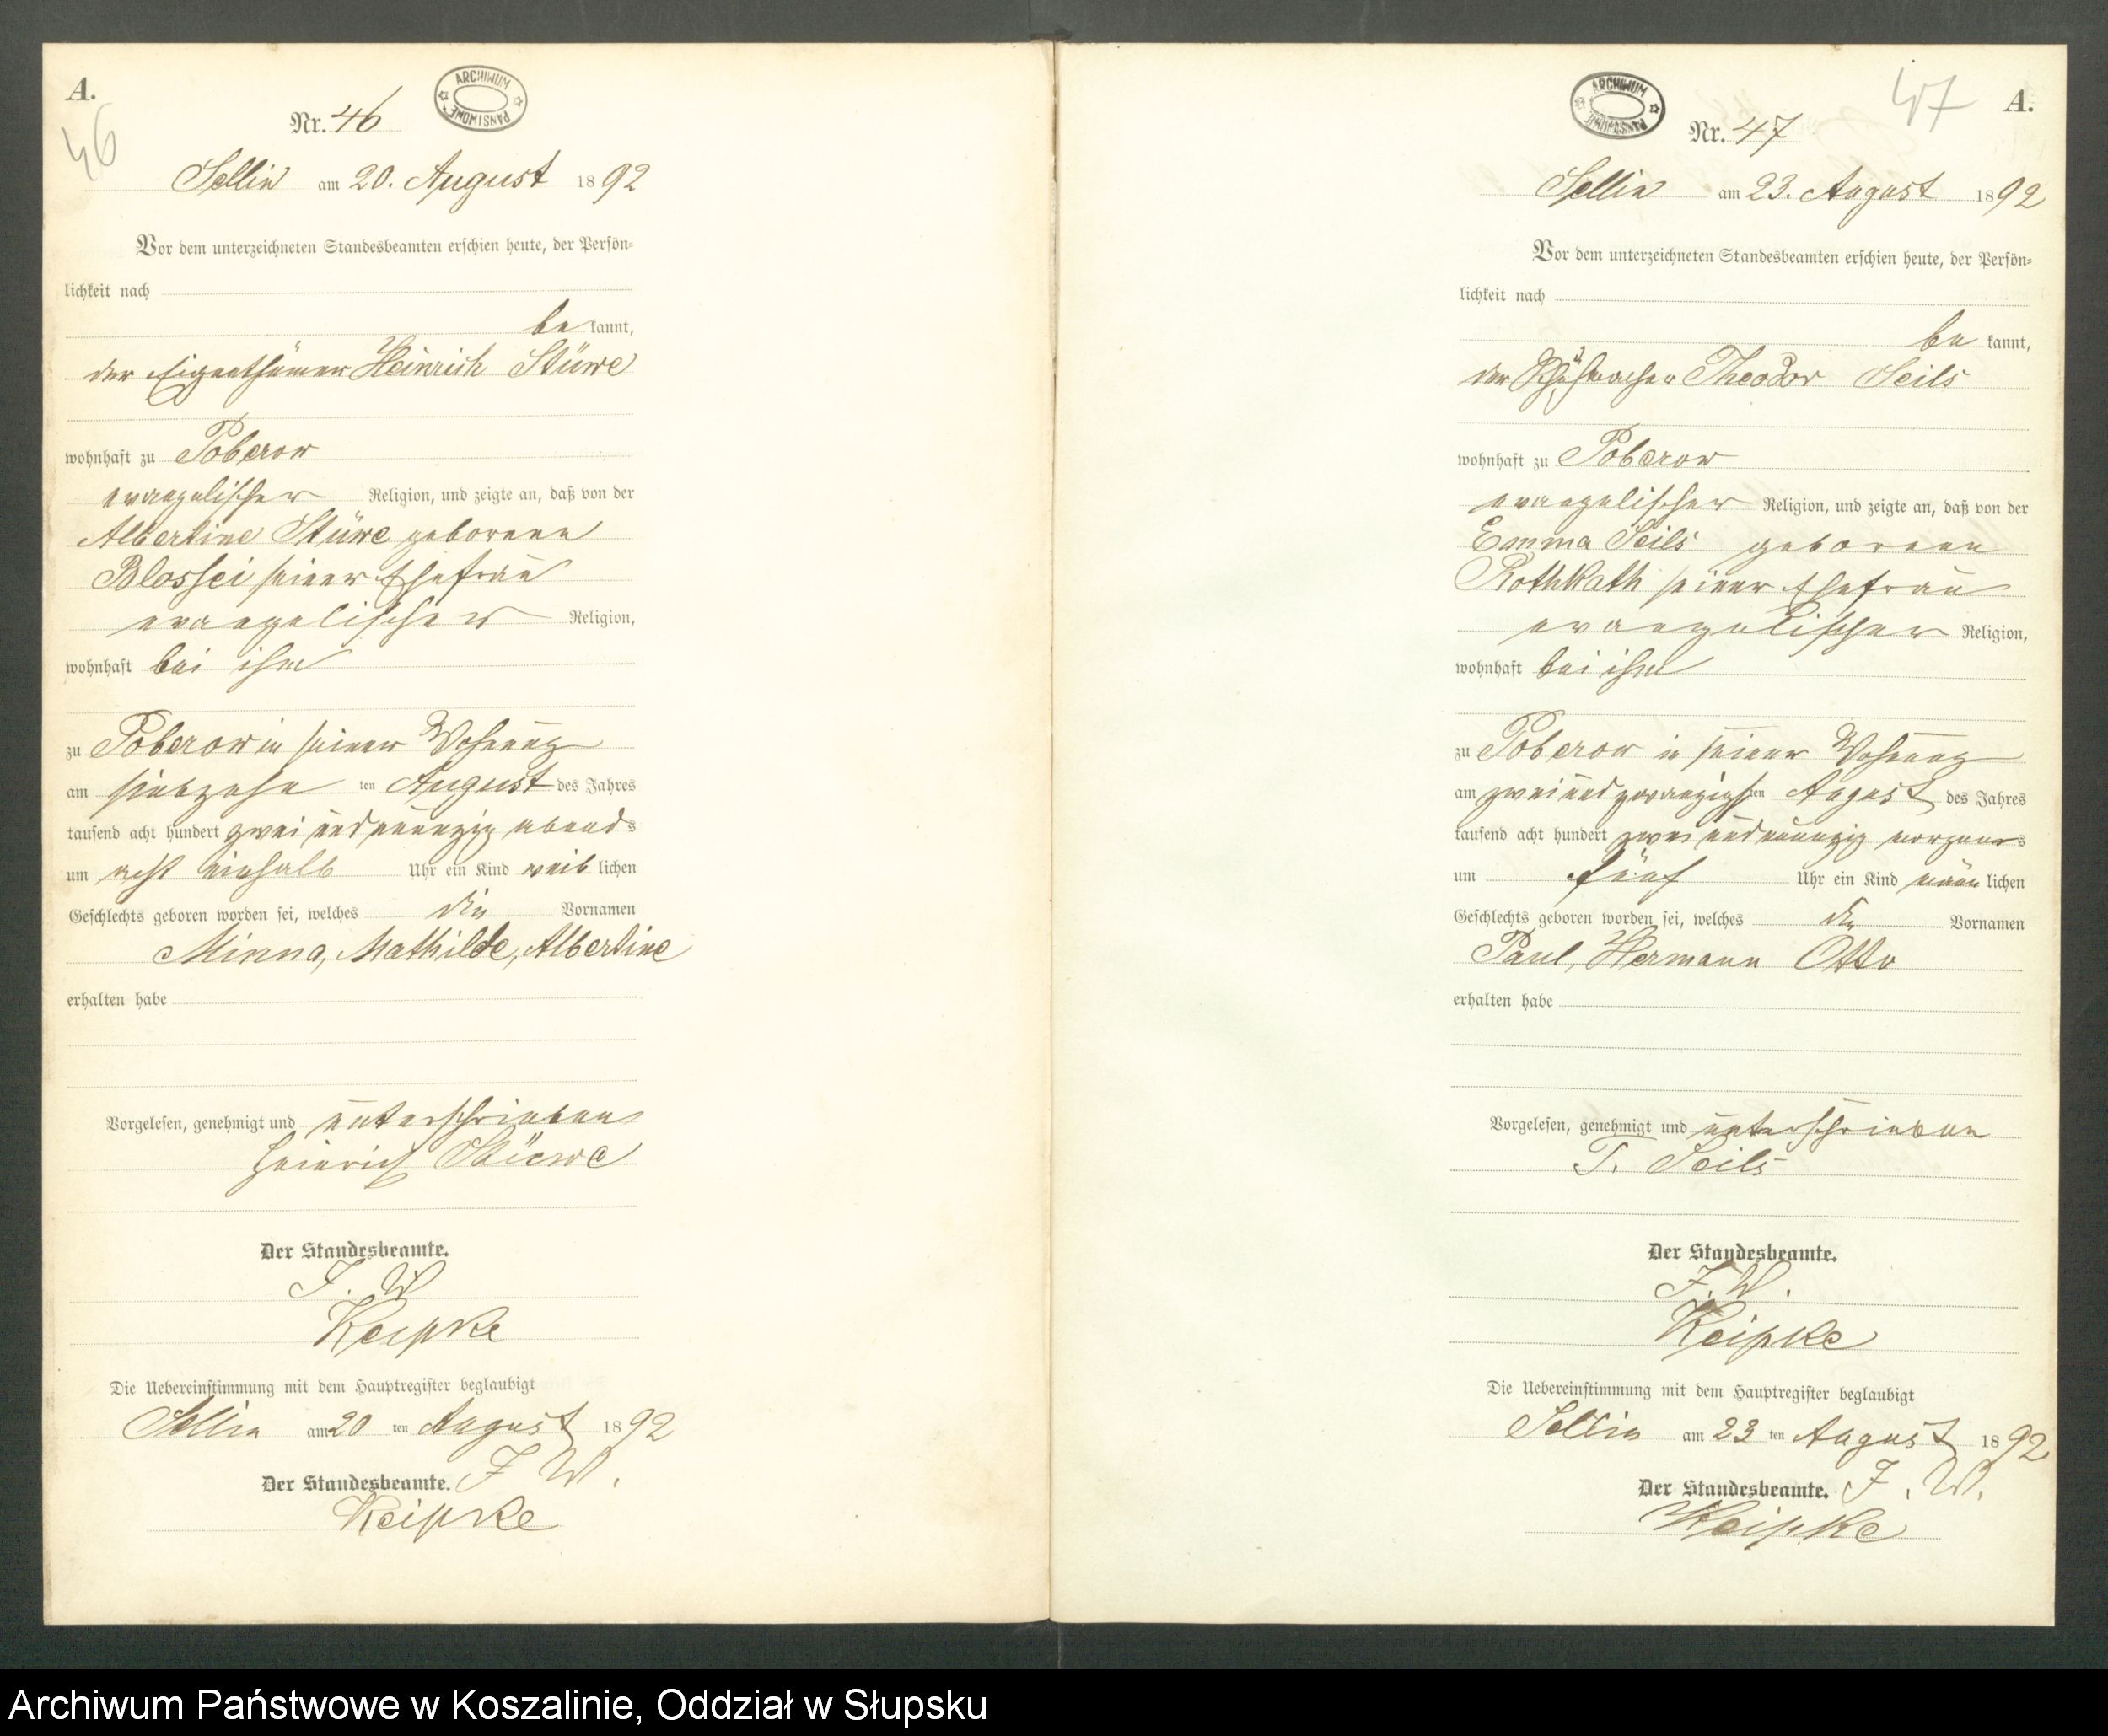 A.
46
Nr. 46
ARCHIWUM PAŃSTWOWE
Sellin am 20. August 1892
Vor dem unterzeichneten Standesbeamten erschien heute, der Persön-
lichkeit nach
be kannt,
der Eigenthümer Heinrich Stüwe
wohnhaft zu Poberow
evangelischer Religion, und zeigte an, daß von der
Albertine Stüwe geborene
Blossei seiner Ehefrau
evangelischer Religion,
wohnhaft bei ihm
zu Poberow in seiner Wohnung
am siebzehn ten August des Jahres
tausend acht hundert zwei und neunzig abends
um acht einhalb Uhr ein Kind weib lichen
Geschlechts geboren worden sei, welches die Vornamen
Minna, Mathilde, Albertine
erhalten habe
Vorgelesen, genehmigt und unterschrieben
Heinrich Stüwe
Der Standesbeamte.
J. W
Keipke
Die Uebereinstimmung mit dem Hauptregister beglaubigt
Sellin am 20 ten August 1892
Der Standesbeamte. J W.
Keipke
47
A.
Nr. 47
ARCHIWUM PAŃSTWOWE
Sellin am 23. August 1892
Vor dem unterzeichneten Standesbeamten erschien heute, der Persön-
lichkeit nach
be kannt,
der Schuhmacher Theodor Seils
wohnhaft zu Poberow
evangelischer Religion, und zeigte an, daß von der
Emma Seils geborene
Rothkath seiner Ehefrau
evangelischer Religion,
wohnhaft bei ihm
zu Poberow in seiner Wohnung
am zwei und zwanzigsten August des Jahres
tausend acht hundert zwei und neunzig morgens
um fünf Uhr ein Kind männ lichen
Geschlechts geboren worden sei, welches die Vornamen
Paul, Hermann Otto
erhalten habe
Vorgelesen, genehmigt und unterschrieben
T. Seils
Der Standesbeamte.
J. W.
Keipke
Die Uebereinstimmung mit dem Hauptregister beglaubigt
Sellin am 23 ten August 1892
Der Standesbeamte. J. W.
Keipke
Archiwum Państwowe w Koszalinie, Oddział w Słupsku